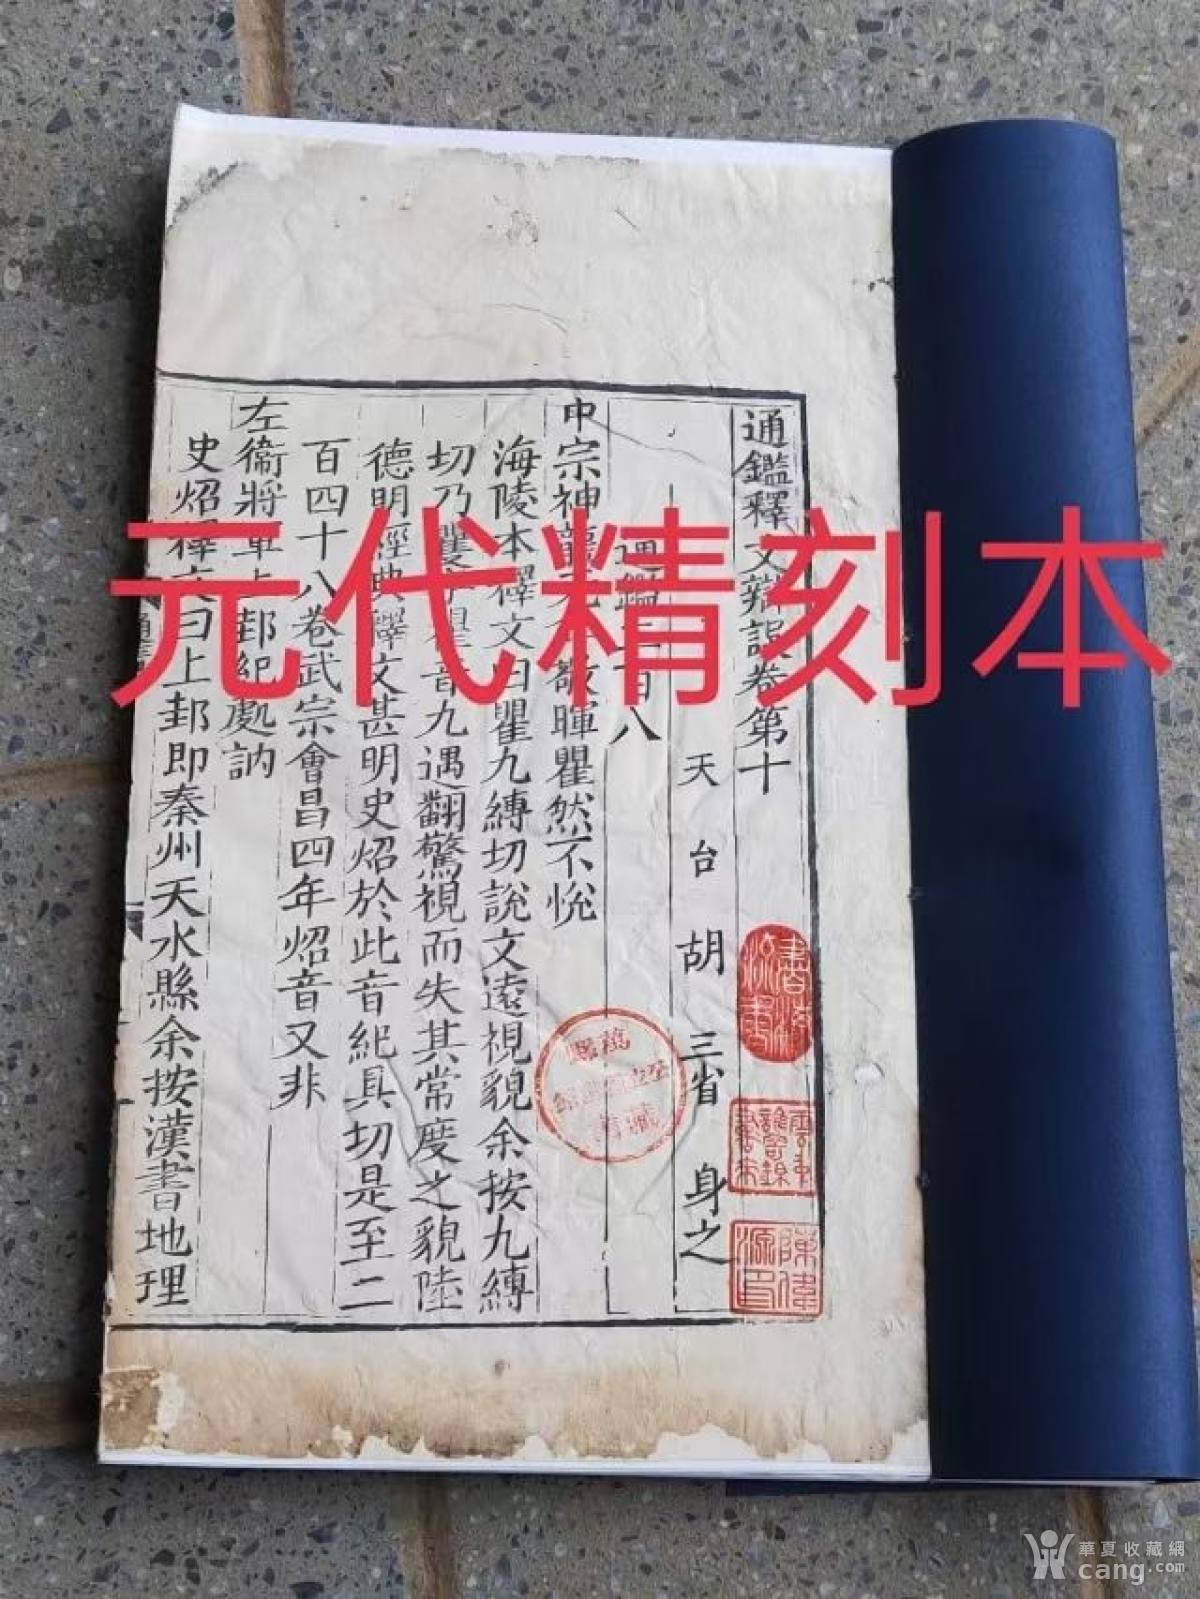 元代精刻本
通鑑釋文辯誤卷第十
天台胡三省身之
通鑑二百八
中宗神龍元 敬暉瞿然不悅
海陵本釋文曰瞿九縛切說文遠視貌余按九縛
切乃矍 瞿音九遇翻驚視而失其常度之貌陸
德明經典釋文甚明史炤於此音紀具切是至二
百四十八卷武宗會昌四年炤音又非
左衞將軍上邽紀處訥
史炤釋文曰上邽即秦州天水縣余按漢書地理
華夏收藏網
cang.com